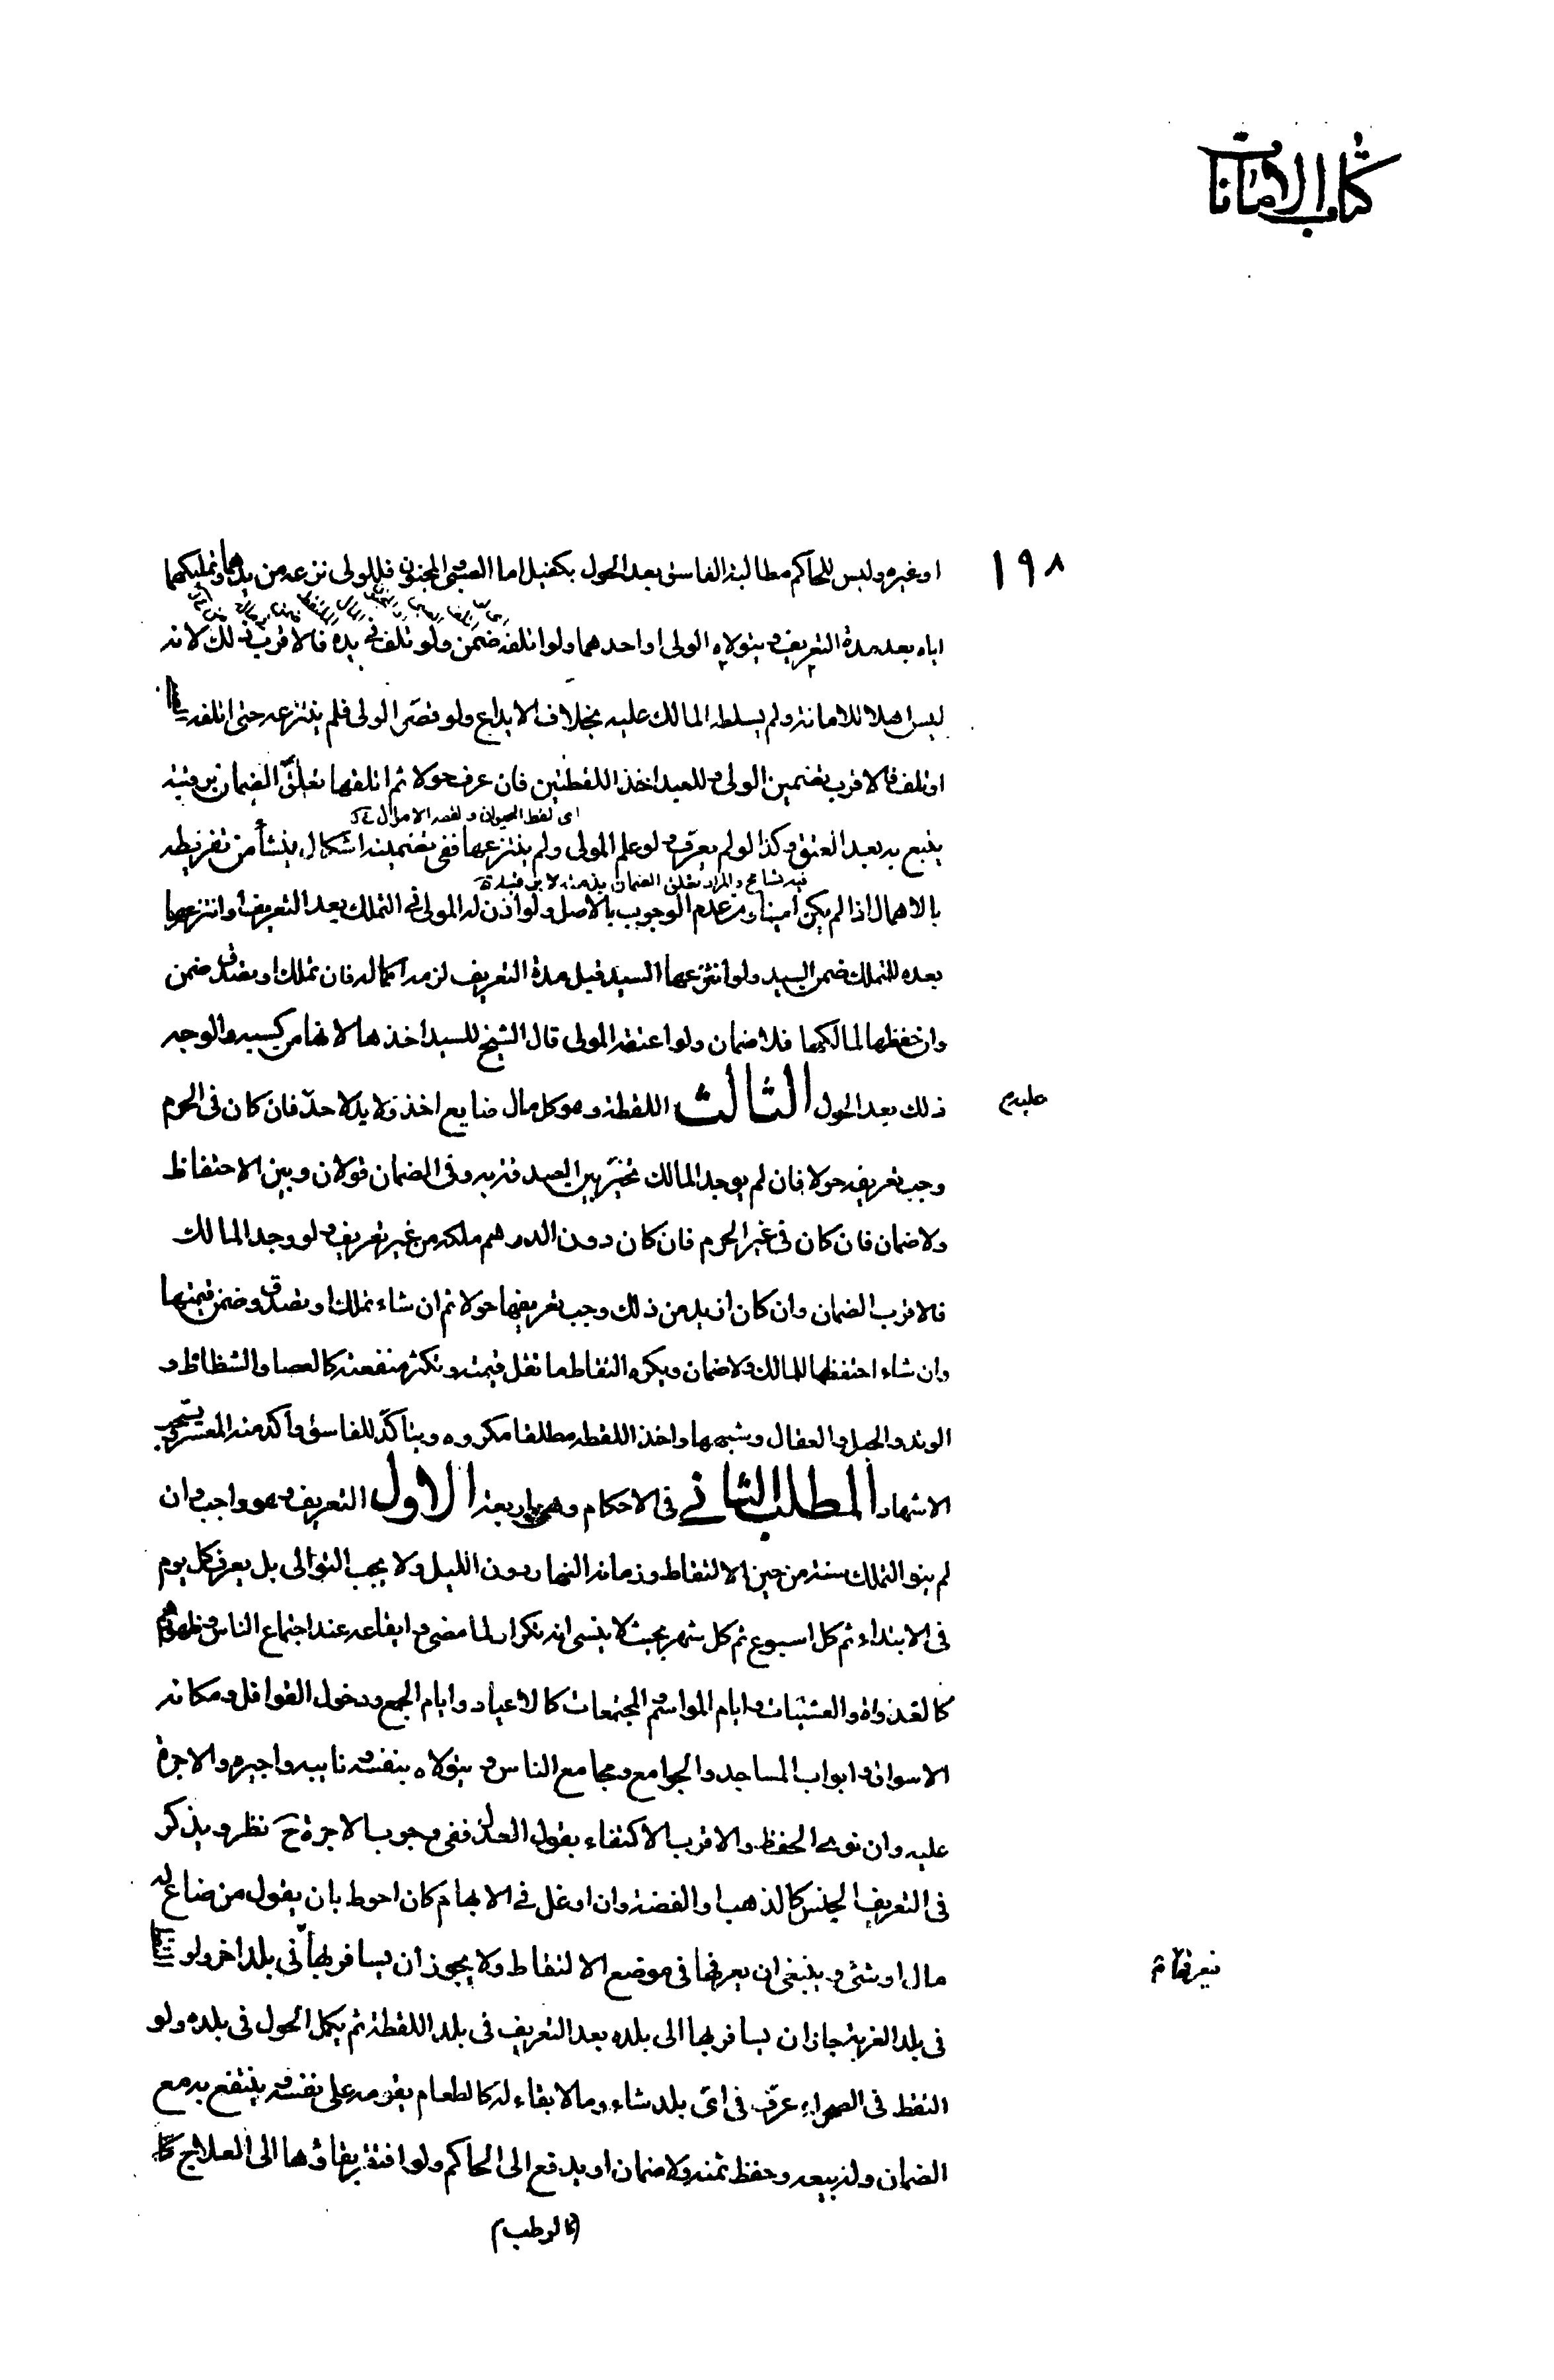 كتاب الامانات
١٩٨
او غيره وليس للحاكم مطالبة الفاسق بعد الحول بكفيل اما الصبى و المجنون فللولى نزعه من يدهما وتمليكهما
اياه بعد مدة التعريف ويتولاه الولى او احدهما ولو اتلفه ضمن ولو تلف فى يده فالاقرب ذلك لانه
ليس اهلا للامانة ولم يسلطه المالك عليه بخلاف الايداع ولو قصّر الولى فلم ينتزعه حتى اتلفه
او تلف فالاقرب تضمين الولى وللعبد اخذ اللقطتين فان عرف حولا ثم اتلفها تعلّق الضمان برقبته
اى لقط الحيوان و لقطه الاموال
يتبع به بعد العتق وكذا لو لم يعرّف ولو علم المولى ولم ينتزعها ففى تضمينه اشكال ينشأ من تفريطه
فيه تسامح والمراد تعلق الضمان بذمته لا برقبته
بالاهمال اذا لم يكن امينا ومن عدم الوجوب بالاصل ولو اذن له المولى فى التملك بعد التعريف او انتزعها
بعده للتملك ضمن السيد ولو انتزعها السيد قبل مدة التعريف لزمه اكماله فان تملك او تصدق ضمن
وان حفظها لمالكها فلا ضمان ولو اعتقه المولى قال الشيخ للسيد اخذها لانها من كسبه والوجه
ذلك بعد الحول الثالث اللقطة وهو كل مال ضايع اخذ ولا يد لاحد عليه فان كان فى الحرم
وجب تعريفه حولا فان لم يوجد المالك تخيّر بين الصدقة به وفى الضمان قولان وبين الاحتفاظ
ولا ضمان فان كان فى غير الحرم فان كان دون الدرهم ملكه من غير تعريف ولو وجد المالك
فالاقرب الضمان وان كان ازيد من ذلك وجب تعريفها حولا ثم ان شاء تملك او تصدق وضمن قيمتها
وان شاء احتفظها للمالك ولا ضمان ويكره التقاط ما تقل قيمته وتكثر منفعته كالعصا والشظاظ و
الوتد والحبل والعقال وشبهها واخذ اللقطه مطلقا مكروه ويتأكّد للفاسق وآكد منه المعسر ويستحب
الاشهاد المطلب الثانى فى الاحكام وهى اربعة الاول التعريف وهو واجب وان
لم ينو التملك سنة من حين الالتقاط وزمانه النهار دون الليل ولا يجب التوالى بل يعرف كل يوم
فى الابتداء ثم كل اسبوع ثم كل شهر بحيث لا ينسى انه تكرار لما مضى وايقاعه عند اجتماع الناس وظهورهم
كالغدوات والعشيات وايام المواسم والمجتمعات كالاعياد وايام الجمع ودخول القوافل ومكانه
الاسواق وابواب المساجد والجوامع ومجامع الناس ويتولاه بنفسه ونايبه واجيره والاجرة
عليه وان نوى الحفظ والاقرب الاكتفاء بقول العدل ففى وجوب الاجرة ح نظر ويذكر
فى التعريف الجنس كالذهب او الفضة وان اوغل فى الابهام كان احوط بان يقول من ضاع له
مال او شئ وينبغى ان يعرفها فى موضع الالتقاط ولا يجوز ان يسافر بها فيعرفها فى بلد اخر ولو التقط
فى بلد الغربة جاز ان يسافر بها الى بلده بعد التعريف فى بلد اللقطة ثم يكمل الحول فى بلده ولو
التقط فى الصحراء عرّف فى اىّ بلد شاء وما لا بقاء له كالطعام يقومه على نفسه وينتفع به مع
الضمان وله بيعه وحفظ ثمنه ولا ضمان او يدفع الى الحاكم ولو افتقر بقاؤها الى العلاج
كالرطب